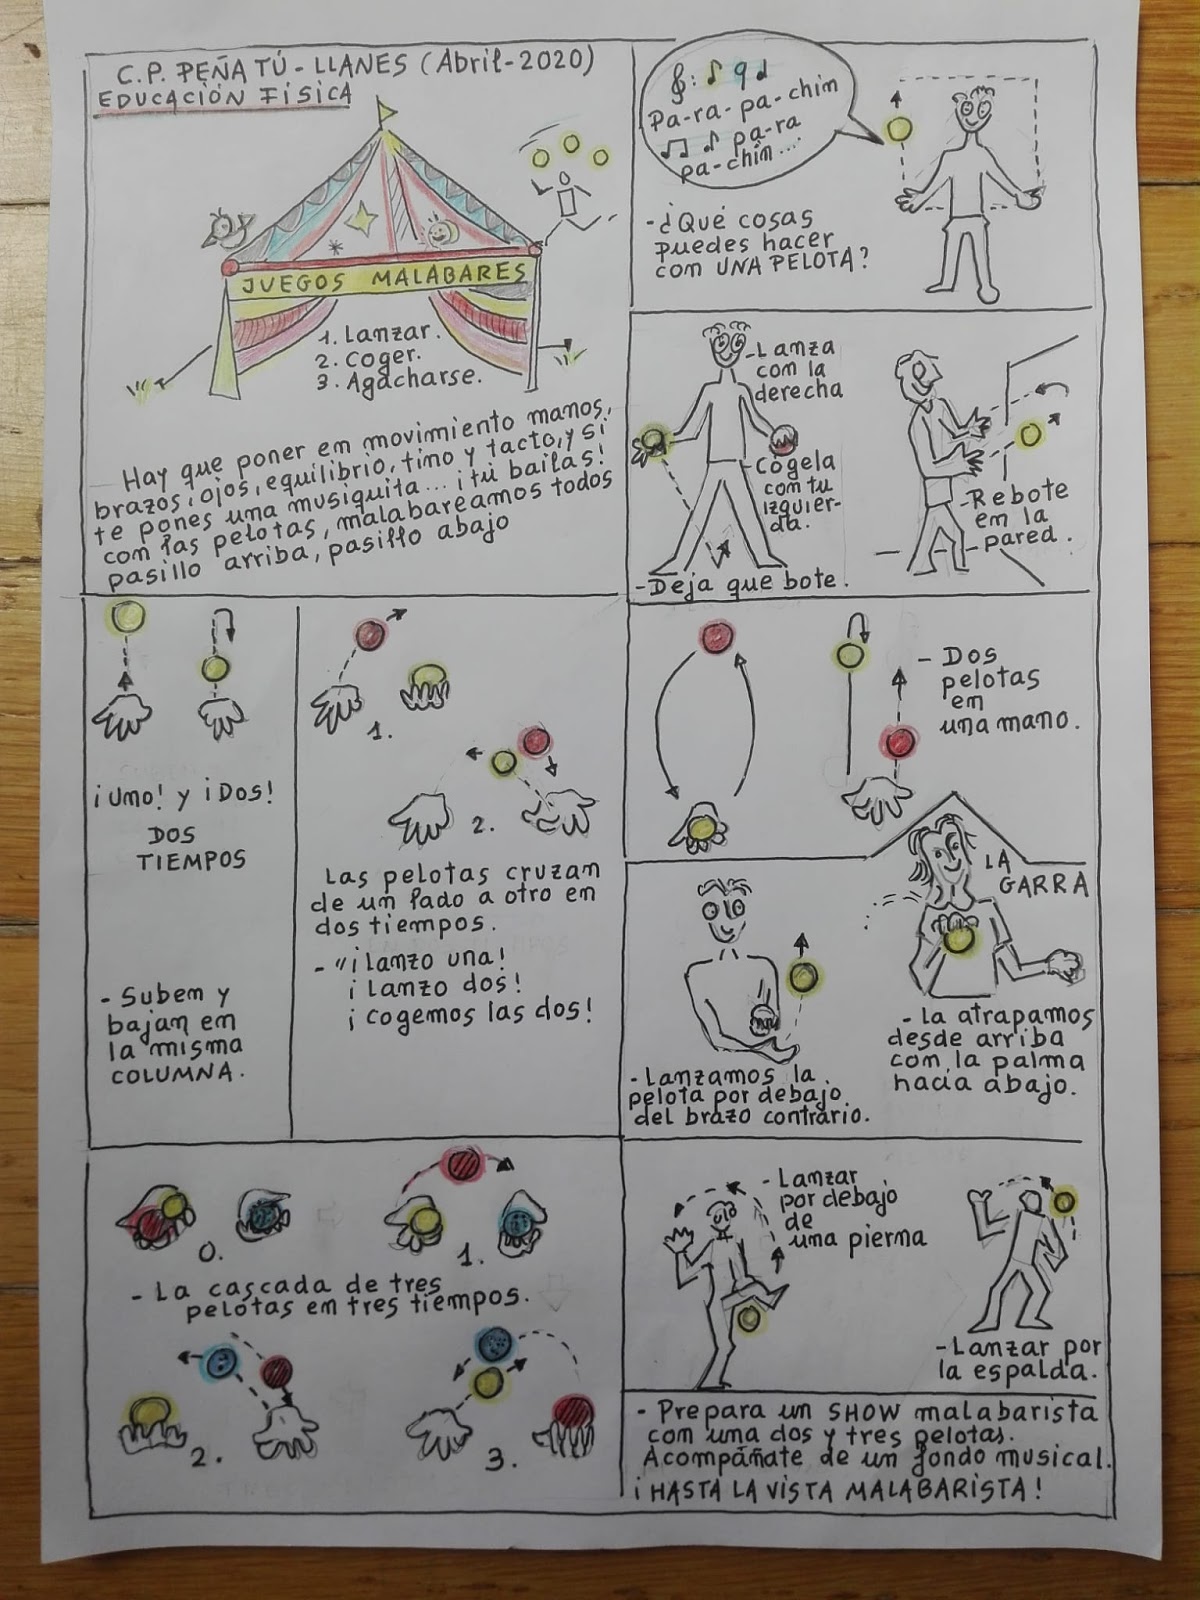 C.P. PEÑA TÚ - LLANES (Abril-2020)
EDUCACIÓN FÍSICA
JUEGOS MALABARES
1. Lanzar.
2. Coger.
3. Agacharse.
Hay que poner en movimiento manos,
brazos, ojos, equilibrio, tino y tacto, y si
te pones una musiquita... ¡tú bailas!
con las pelotas, malabareamos todos
pasillo arriba, pasillo abajo
Pa-ra-pa-chin
pa-ra
pa-chin....
- ¿Qué cosas
puedes hacer
con UNA PELOTA?
- Lanza
con la
derecha
- Cógela
con tu
izquier-
da.
- Deja que bote.
- Rebote
en la
pared.
¡Uno! y ¡Dos!
DOS
TIEMPOS
- Suben y
bajan en
la misma
COLUMNA.
1.
2.
Las pelotas cruzan
de un lado a otro en
dos tiempos.
- "¡Lanzo una!
¡Lanzo dos!
¡Cogemos las dos!
- Dos
pelotas
en
una mano.
- Lanzamos la
pelota por debajo
del brazo contrario.
LA
GARRA
- La atrapamos
desde arriba
con la palma
hacia abajo.
0.
1.
- La cascada de tres
pelotas en tres tiempos.
2.
3.
- Lanzar
por debajo
de
una pierna
- Lanzar por
la espalda.
- Prepara un SHOW malabarista
con una dos y tres pelotas.
Acompáñate de un fondo musical.
¡HASTA LA VISTA MALABARISTA!